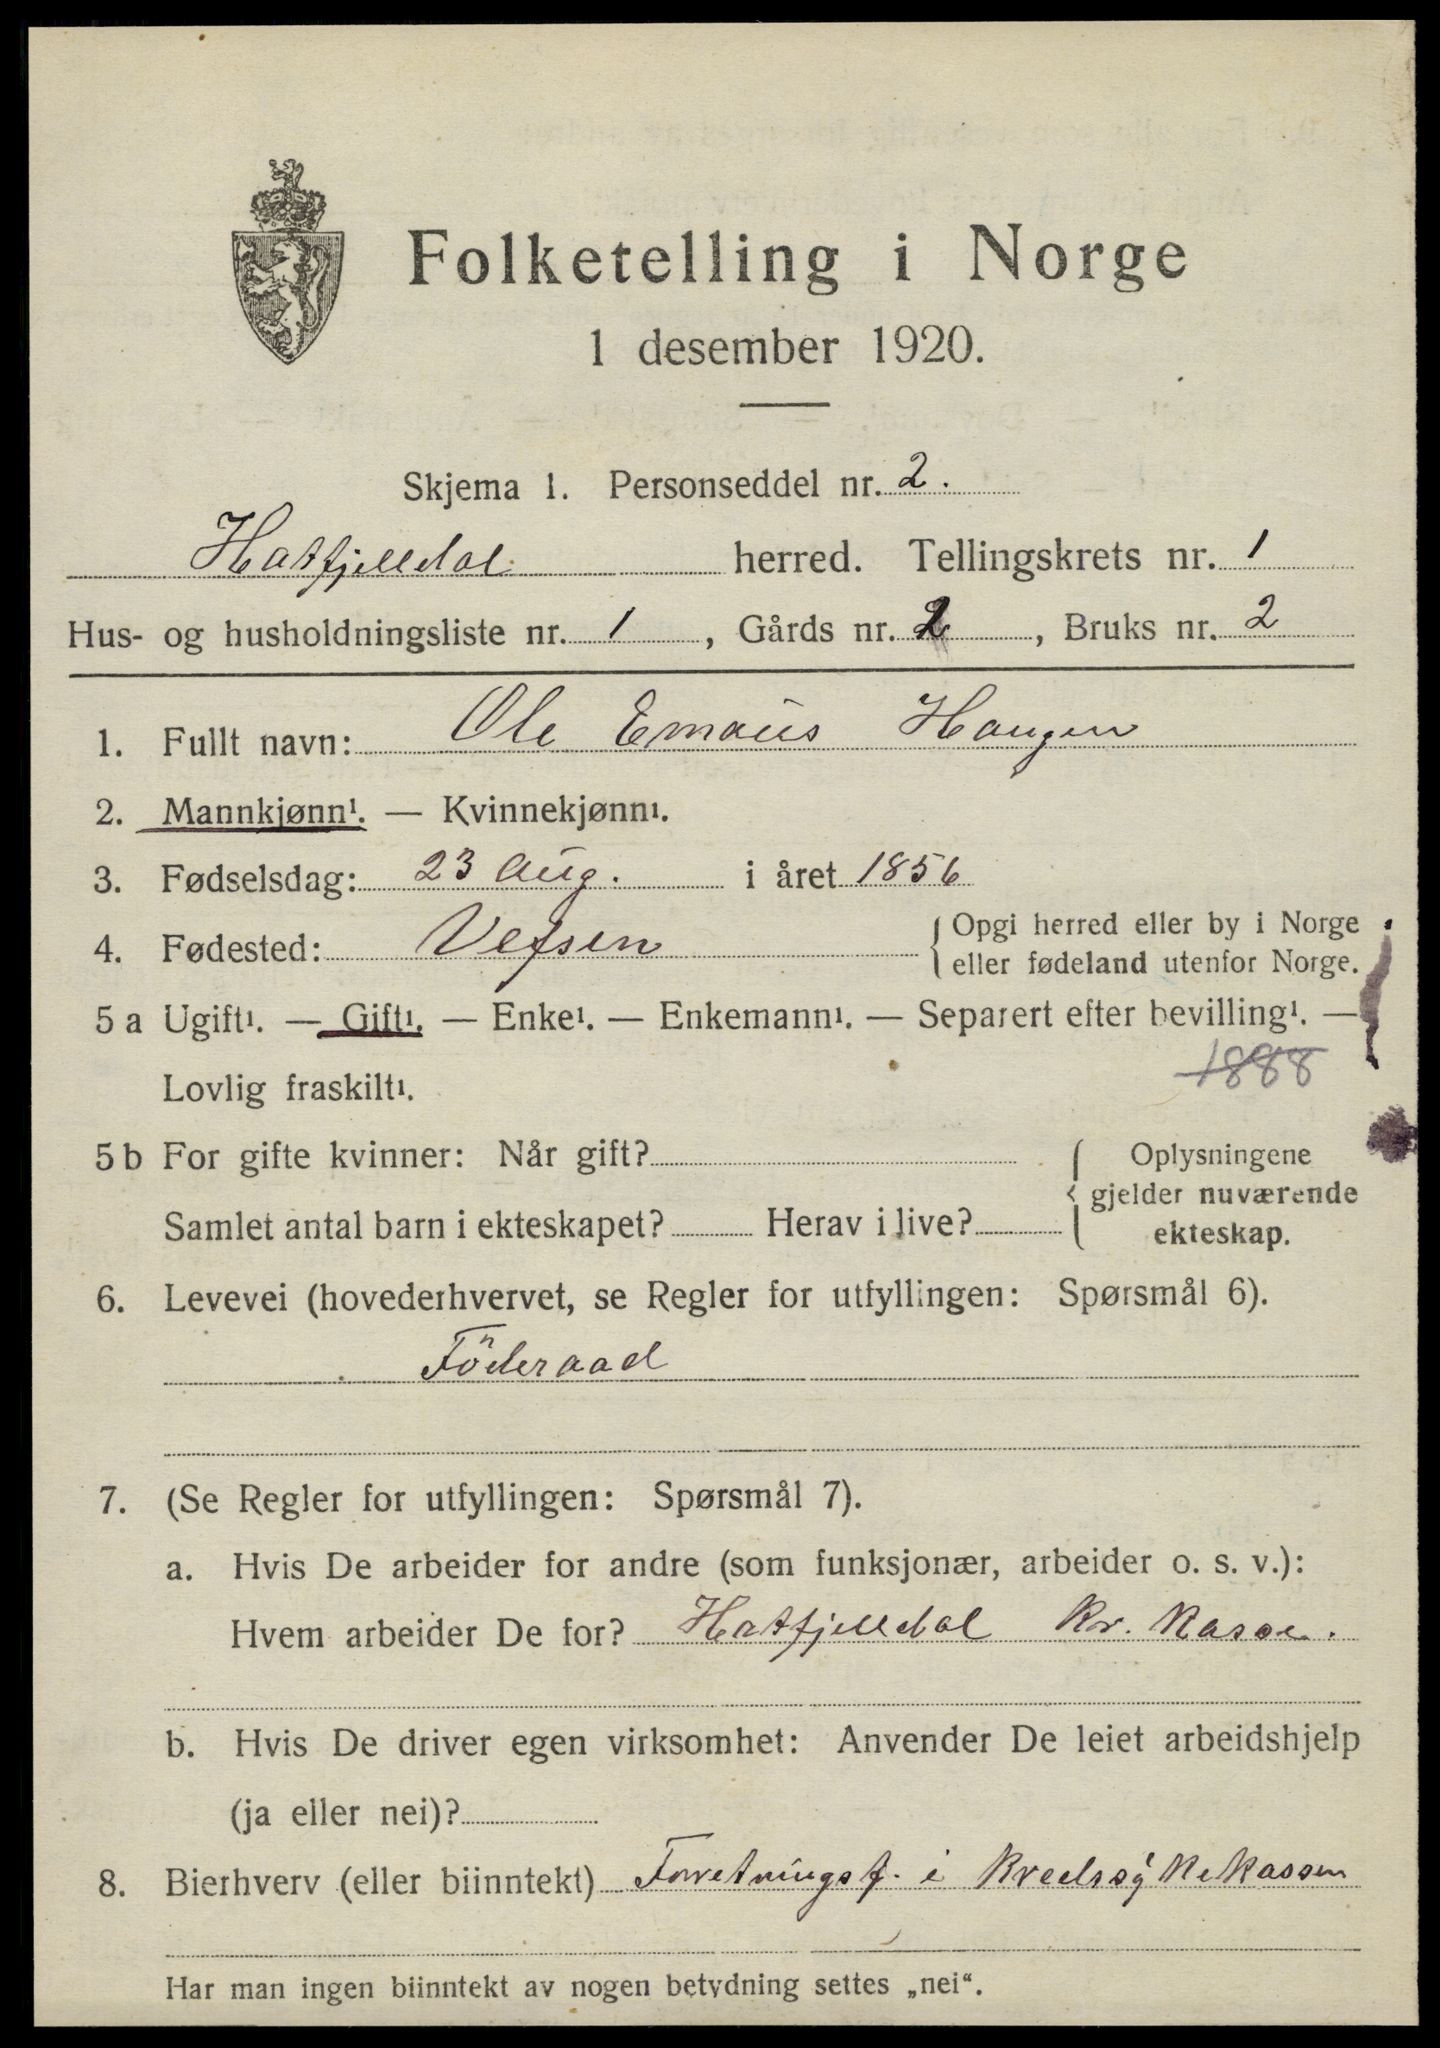 Folketelling i Norge
1 desember 1920.
Skjema 1. Personseddel nr. 2.
Hatfjelldal herred. Tellingskrets nr. 1
Hus- og husholdningsliste nr. 1, Gårds nr. 2, Bruks nr. 2
1. Fullt navn: Ole Emaus Haugen
2. Mannkjønn¹. — Kvinnekjønn¹.
3. Fødselsdag: 23 Aug. i året 1856
4. Fødested: Vefsen { Opgi herred eller by i Norge
eller fødeland utenfor Norge.
5 a Ugift¹. — Gift¹. — Enke¹. — Enkemann¹. — Separert efter bevilling¹. —
1888
Lovlig fraskilt¹.
5 b For gifte kvinner: Når gift? { Oplysningene
gjelder nuværende
Samlet antal barn i ekteskapet? Herav i live? ekteskap.
6. Levevei (hovederhvervet, se Regler for utfyllingen: Spørsmål 6).
Föderaad
7. (Se Regler for utfyllingen: Spørsmål 7).
a. Hvis De arbeider for andre (som funksjonær, arbeider o. s. v.):
Hvem arbeider De for? Hatfjelldal Kr. Kasse.
b. Hvis De driver egen virksomhet: Anvender De leiet arbeidshjelp
(ja eller nei)?
8. Bierhverv (eller biinntekt) Forretningsf. i Kredssÿkekassen
Har man ingen biinntekt av nogen betydning settes „nei“.